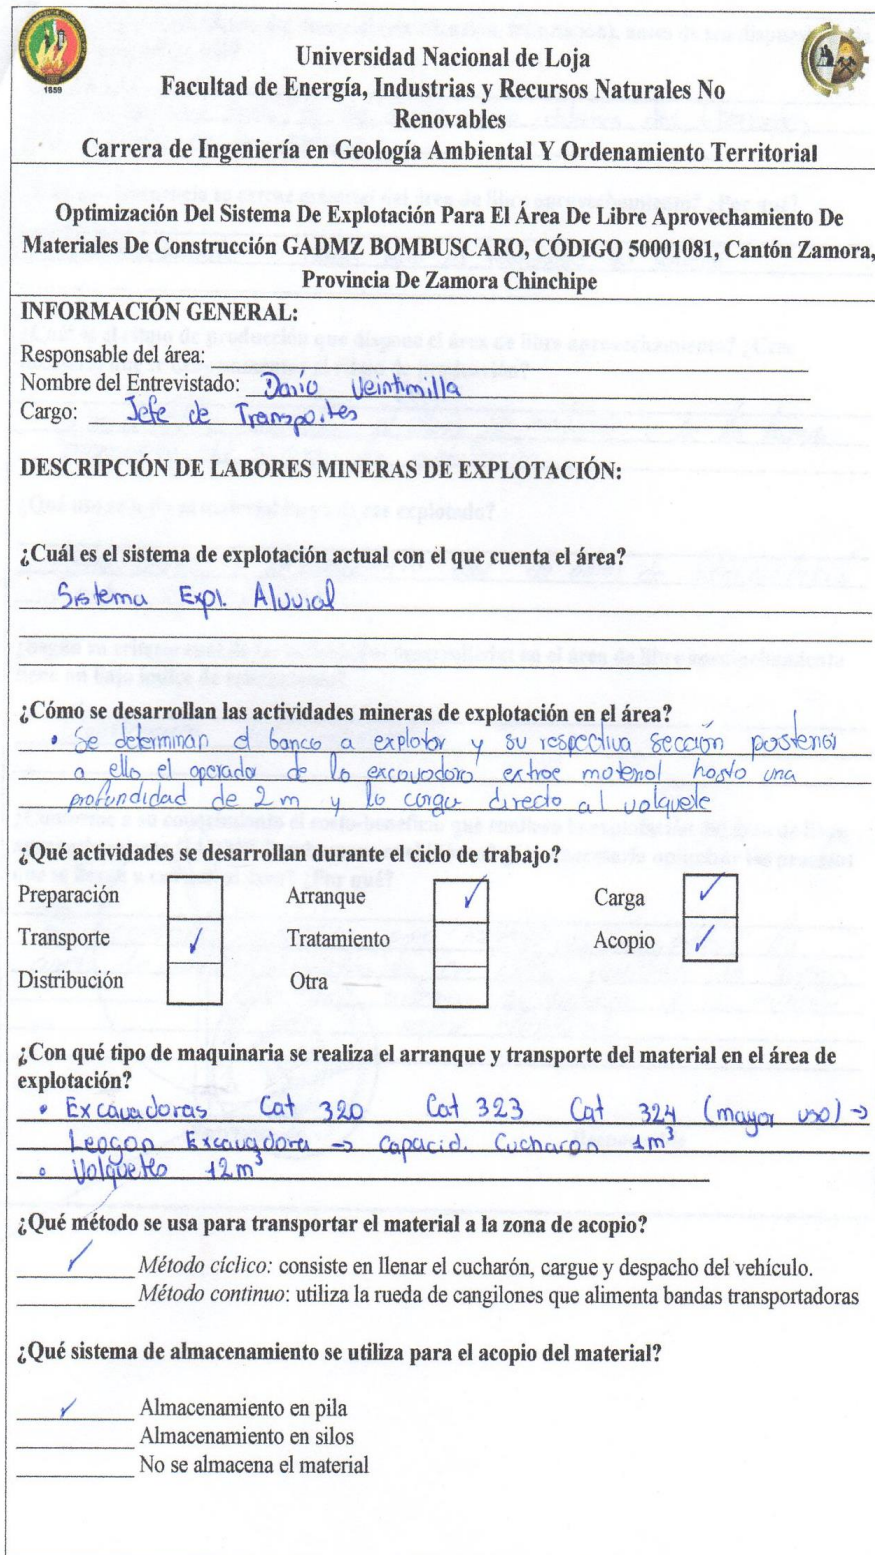 1859
Universidad Nacional de Loja
Facultad de Energía, Industrias y Recursos Naturales No
Renovables
Carrera de Ingeniería en Geología Ambiental Y Ordenamiento Territorial
Optimización Del Sistema De Explotación Para El Área De Libre Aprovechamiento De
Materiales De Construcción GADMZ BOMBUSCARO, CÓDIGO 50001081, Cantón Zamora,
Provincia De Zamora Chinchipe
INFORMACIÓN GENERAL:
Responsable del área:
Nombre del Entrevistado: Darío Veintimilla
Cargo: Jefe de Transportes
DESCRIPCIÓN DE LABORES MINERAS DE EXPLOTACIÓN:
¿Cuál es el sistema de explotación actual con el que cuenta el área?
Sistema Expl. Aluvial
¿Cómo se desarrollan las actividades mineras de explotación en el área?
• Se determinan el banco a explotar y su respectiva sección posterior
a ello el operador de la excavadora extrae material hasta una
profundidad de 2 m y lo carga directo al volquete
¿Qué actividades se desarrollan durante el ciclo de trabajo?
Preparación Arranque ✓ Carga ✓
Transporte ✓ Tratamiento Acopio ✓
Distribución Otra
¿Con qué tipo de maquinaria se realiza el arranque y transporte del material en el área de
explotación?
• Excavadoras Cat 320 Cat 323 Cat 324 (mayor uso) →
Excavadora → capacid. Cucharon 1m³
• Volquetes 12m³
¿Qué método se usa para transportar el material a la zona de acopio?
✓ Método cíclico: consiste en llenar el cucharón, cargue y despacho del vehículo.
Método continuo: utiliza la rueda de cangilones que alimenta bandas transportadoras
¿Qué sistema de almacenamiento se utiliza para el acopio del material?
✓ Almacenamiento en pila
Almacenamiento en silos
No se almacena el material